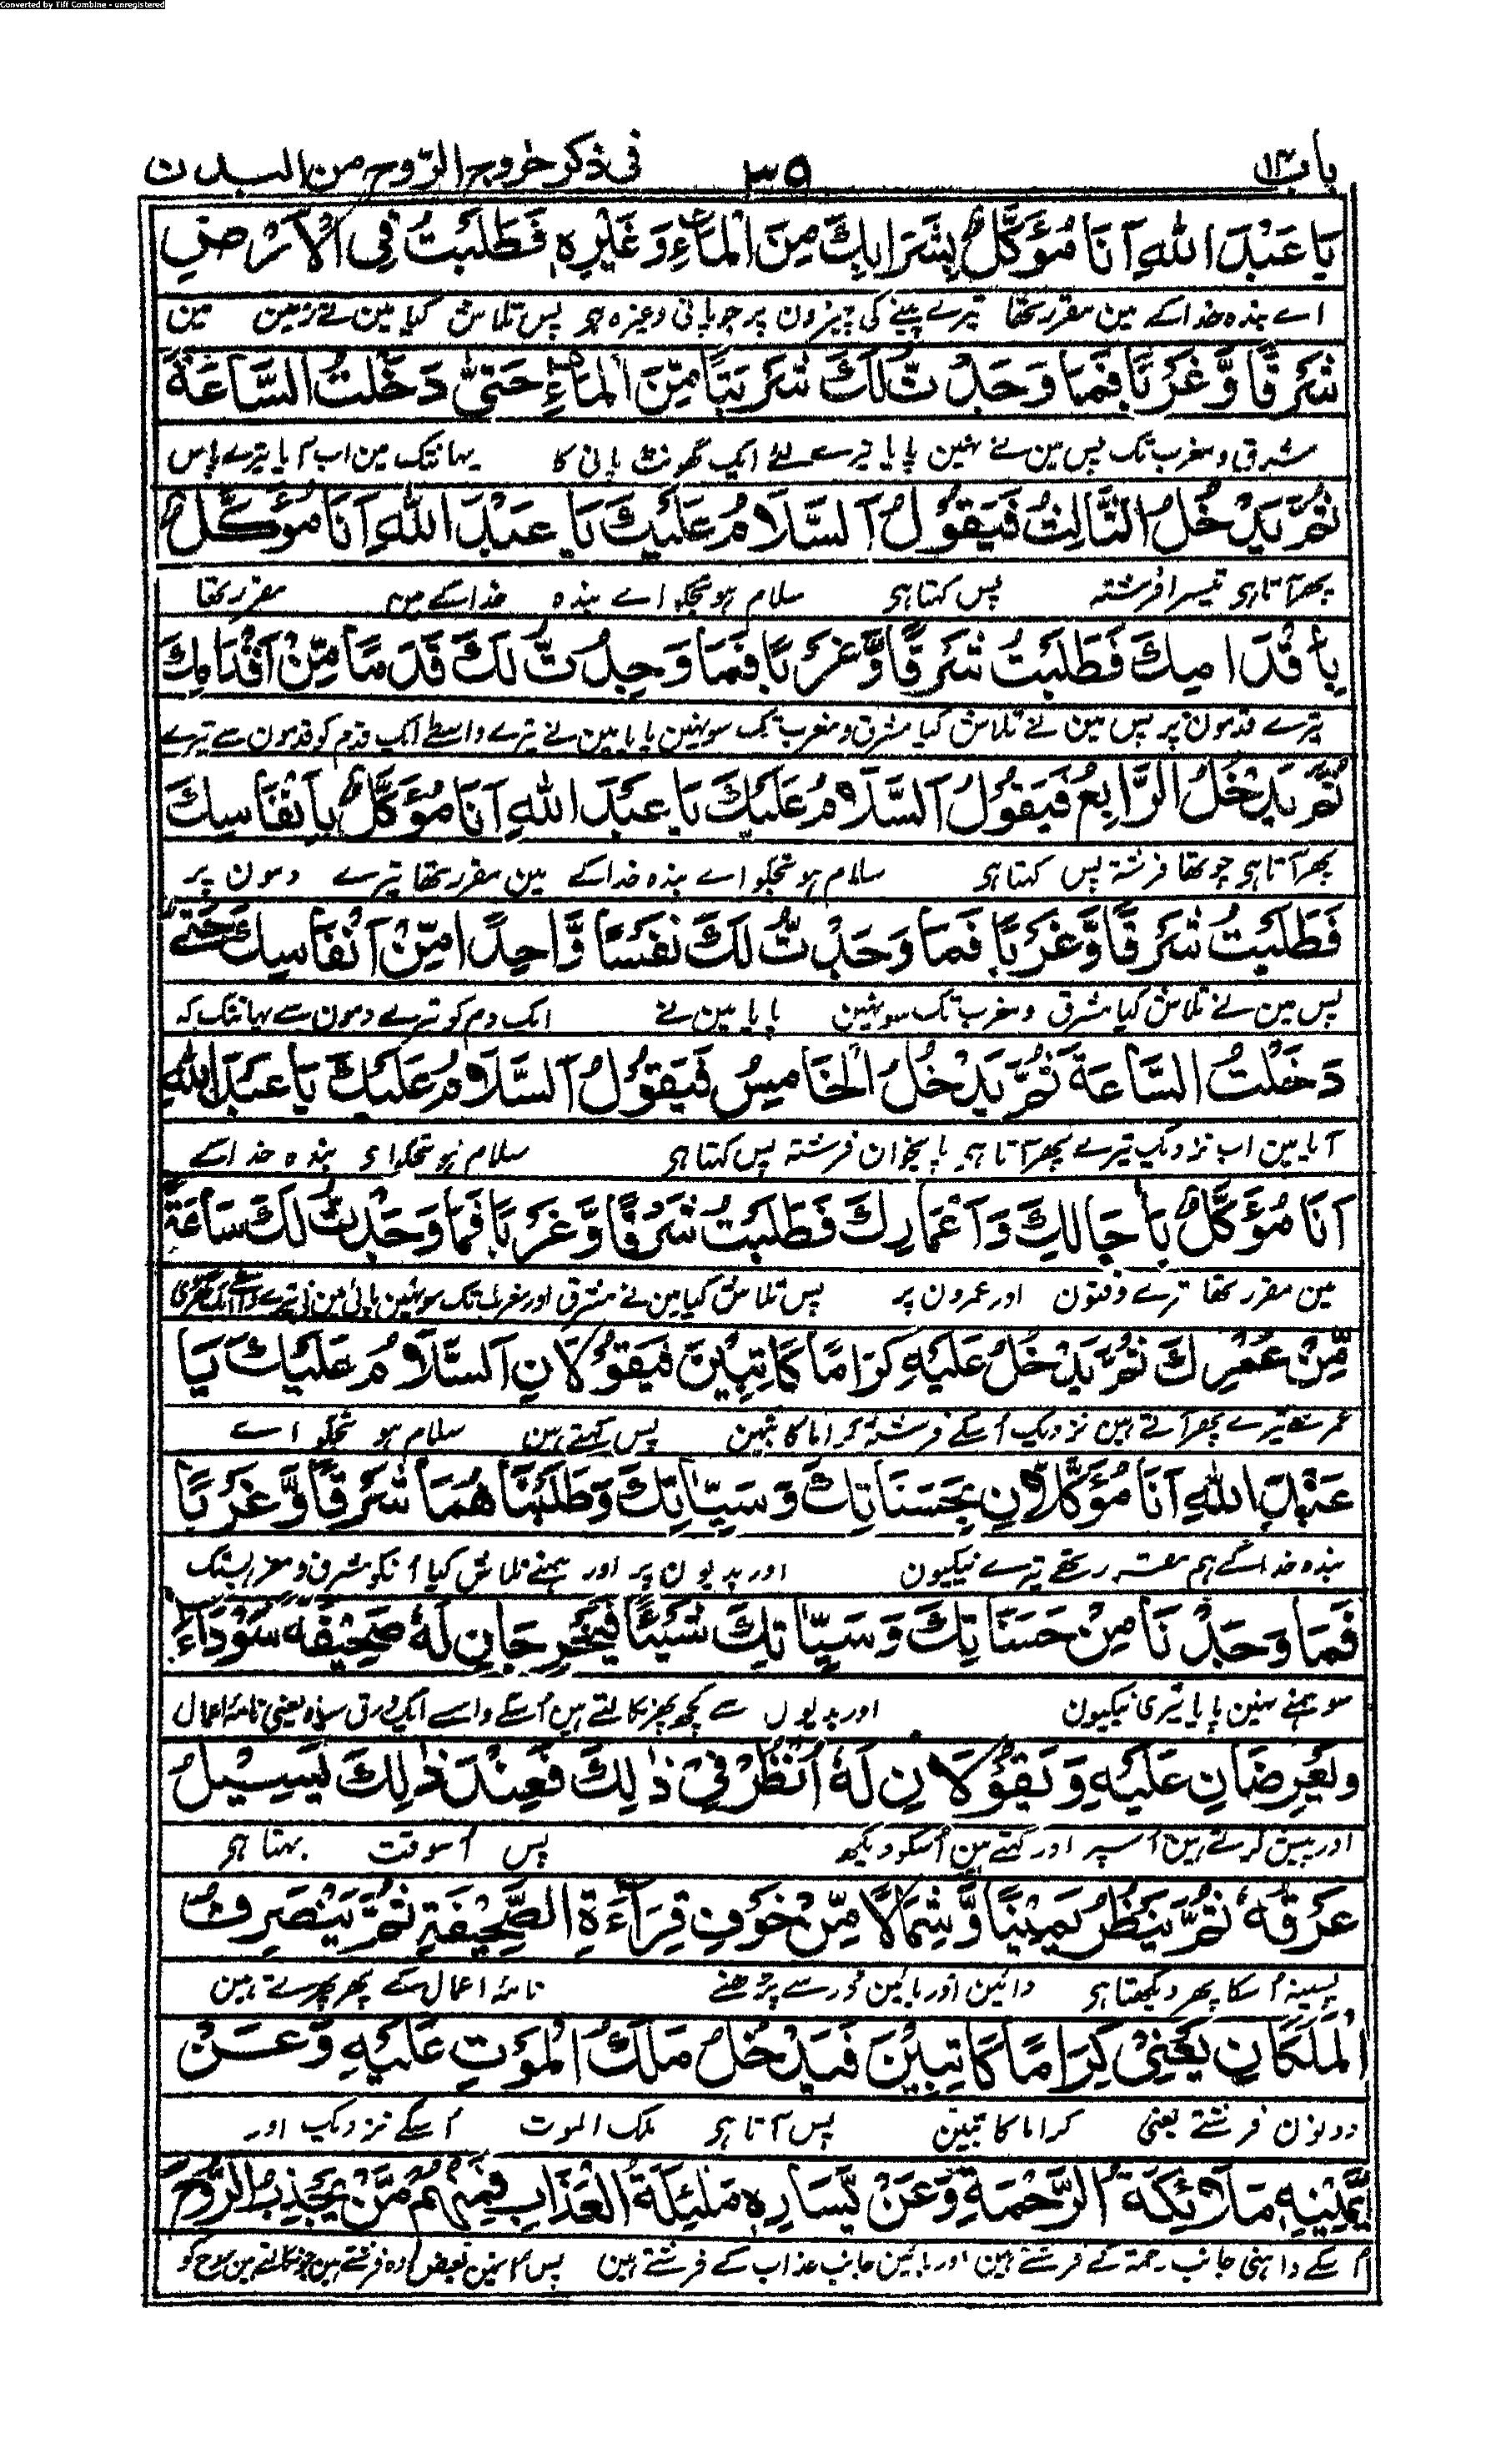 Converted by Tiff Combine - unregistered
باب ١٣ ٣٥ فى ذكر خروج الرّوح من البدن
يَا عَبْدَ اللهِ اَنَا مُؤَكَّلٌ بِشَرَابِكَ مِنَ الْمَاءِ وَغَيْرِهٖ فَطَلَبْتُ فِى الْاَرْضِ
اے بندہ خدا کے مین مقرر تھا تیرے پینے کی چیزون پر جو پانی وغیرہ ہو پس تلاش کیا مین نے زمین مین
شَرْقًا وَّغَرْبًا فَمَا وَجَدْتُّ لَكَ شَرْبَتًا مِّنَ الْمَاءِ حَتّٰى دَخَلْتُ السَّاعَةَ
مشرق ومغرب تک پس مین نے نہین پایا تیرے لئے ایک گھونٹ پانی کا یہانتک مین اب آیا تیرے پاس
ثُمَّ يَدْخُلُ الثَّالِثُ فَيَقُوْلُ اَلسَّلَامُ عَلَيْكَ يَا عَبْدَ اللهِ اَنَا مُؤَكَّلٌ
پھر آتا ہی تیسرا فرشتہ پس کہتا ہی سلام ہو تجکو اے بندہ خدا کے مین مقرر تھا
بِاَقْدَامِكَ فَطَلَبْتُ شَرْقًا وَّغَرْبًا فَمَا وَجَدْتُّ لَكَ قَدَمًا مِّنْ اَقْدَامِكَ
تیرے قدمون پر پس مین نے تلاش کیا مشرق ومغرب تک سو نہین پایا مین نے تیرے واسطے ایک قدم کو قدمون سے تیرے
ثُمَّ يَدْخُلُ الرَّابِعُ فَيَقُوْلُ اَلسَّلَامُ عَلَيْكَ يَا عَبْدَ اللهِ اَنَا مُؤَكَّلٌ بِاَنْفَاسِكَ
پھر آتا ہی چوتھا فرشتہ پس کہتا ہی سلام ہو تجکو اے بندہ خدا کے مین مقرر تھا تیرے دمون پر
فَطَلَبْتُ شَرْقًا وَّغَرْبًا فَمَا وَجَدْتُّ لَكَ نَفَسًا وَّاحِدًا مِّنْ اَنْفَاسِكَ حَتّٰى
پس مین نے تلاش کیا مشرق ومغرب تک سو نہین پایا مین نے ایک دم کو تیرے دمون سے یہانتک کہ
دَخَلْتُ السَّاعَةَ ثُمَّ يَدْخُلُ الْخَامِسُ فَيَقُوْلُ اَلسَّلَامُ عَلَيْكَ يَا عَبْدَ اللهِ
آیا مین اب نزدیک تیرے پھر آتا ہی پانچوان فرشتہ پس کہتا ہی سلام ہو تجکو ای بندہ خدا کے
اَنَا مُؤَكَّلٌ بِاٰجَالِكَ وَاَعْمَارِكَ فَطَلَبْتُ شَرْقًا وَّغَرْبًا فَمَا وَجَدْتُّ لَكَ سَاعَةً
مین مقرر تھا تیرے وقتون اور عمرون پر پس تلاش کیا مین نے مشرق اور مغرب تک سو نہین پائی مین نے تیرے واسطے ایک گھڑی
مِّنْ عُمُرِكَ ثُمَّ يَدْخُلُ عَلَيْهِ كِرَامًا كَاتِبِيْنَ فَيَقُوْلَانِ اَلسَّلَامُ عَلَيْكَ يَا
عمر سے تیرے پھر آتے ہین نزدیک اُسکے فرشتہ کراما کاتبین پس کہتے ہین سلام ہو تجکو اے
عَبْدَ اللهِ اَنَا مُؤَكَّلَانِ بِحَسَنَاتِكَ وَسَيِّاٰتِكَ وَطَلَبْنَاهُمَا شَرْقًا وَّغَرْبًا
بندہ خدا کے ہم مقرر تھے تیرے نیکیون اور بدیون پر اور ہمنے تلاش کیا اُنکو مشرق ومغرب تک
فَمَا وَجَدْنَا مِنْ حَسَنَاتِكَ وَسَيِّاٰتِكَ شَيْئًا فَيُخْرِجَانِ لَهٗ صَحِيْفَةً سَوْدَاءَ
سو ہمنے نہین پایا تیری نیکیون اور بدیون سے کچھ پھر نکالتے ہین اُسکے واسے ایک ورق سیاہ یعنی نامۂ اعمال
وَيَعْرِضَانِ عَلَيْهِ وَيَقُوْلَانِ لَهٗ اُنْظُرْ فِىْ ذٰلِكَ فَعِنْدَ ذٰلِكَ يَسِيْلُ
اور پیش کرتے ہین اُسپر اور کہتے ہین اُسکو دیکھ پس اُسوقت بہتا ہی
عَرَقُهٗ ثُمَّ يَنْظُرُ يَمِيْنًا وَّشِمَالًا مِّنْ خَوْفِ قِرَاءَةِ الصَّحِيْفَةِ ثُمَّ يَنْصَرِفُ
پسینہ اُسکا پھر دیکھتا ہی دائین اور بائین ڈر سے پڑھنے نامۂ اعمال کے پھر پھرتے ہین
الْمَلَكَانِ يَعْنِىْ كِرَامًا كَاتِبِيْنَ فَيَدْخُلُ مَلَكُ الْمَوْتِ عَلَيْهِ وَعَنْ
دونون فرشتے یعنی کراما کاتبین پس آتا ہی ملک الموت اُسکے نزدیک اور
يَّمِيْنِهٖ مَلَائِكَةُ الرَّحْمَةِ وَعَنْ يَّسَارِهٖ مَلٰئِكَةُ الْعَذَابِ فَمِنْهُمْ مَّنْ يَّجْذِبُ الرُّوْحَ
اُسکے داہنی جانب رحمت کے فرشتے ہین اور بائین جانب عذاب کے فرشتے ہین پس اُنمین بعض وہ فرشتے ہین جو نکالتے ہین روح کو